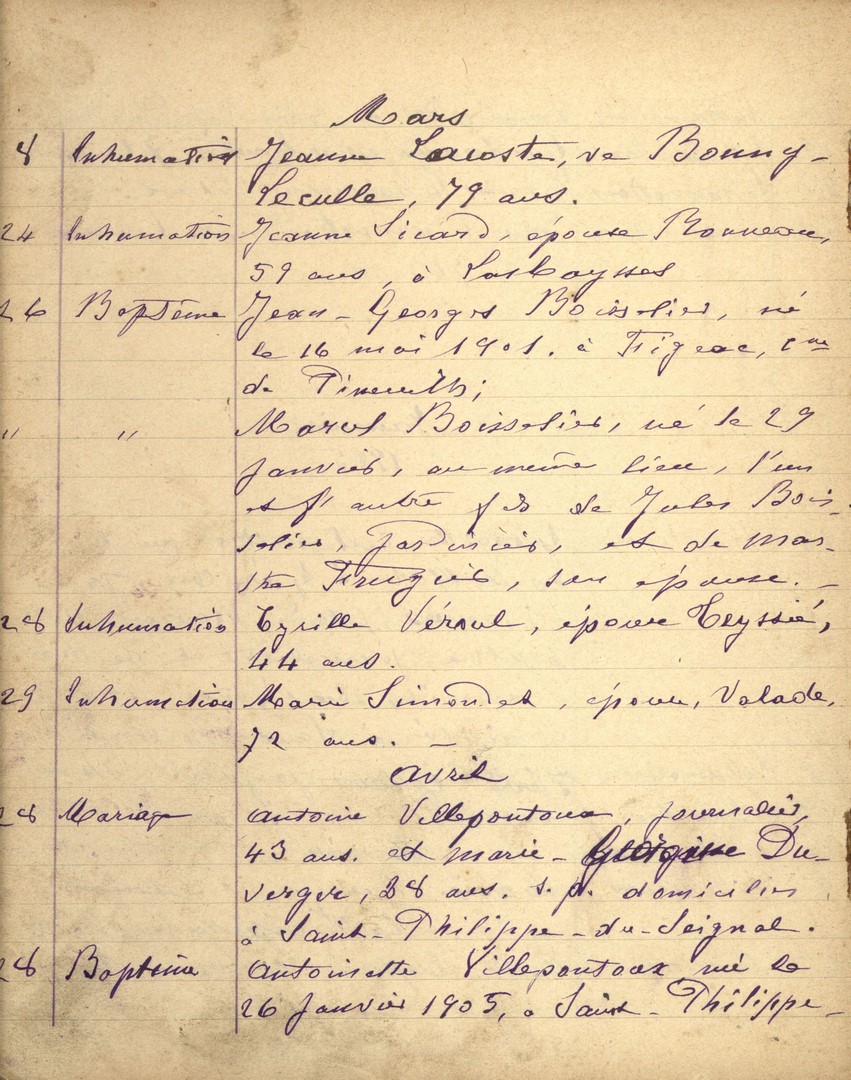 Mars
8 Inhumation Jeanne Lacoste, ve Bonny-
Leculle, 79 ans.
24 Inhumation Jeanne Sicard, épouse Bonneau,
59 ans, à Lasbaysses
26 Baptême Jean-Georges Boisselier, né
le 16 mai 1901. à Figeac, Cne
de Pineuilh;
" " Marcel Boisselier, né le 29
janvier, au même lieu, l'un
et l'autre fs de Jules Bois-
selier, jardinier, et de
Frugier, son épouse. -
28 Inhumation Cyrille Véroul, épouse Teyssié,
44 ans.
29 Inhumation Marie Simondet, épouse, Valade,
72 ans. -
Avril
28 Mariage Antoine Villepontoux, journalier,
43 ans. et Marie- Du-
verger, 28 ans. s. p. domiciliés
à Saint-Philippe-du-Seignal.
28 Baptême Antoinette Villepontoux, née le
26 Janvier 1905, à Saint-Philippe-